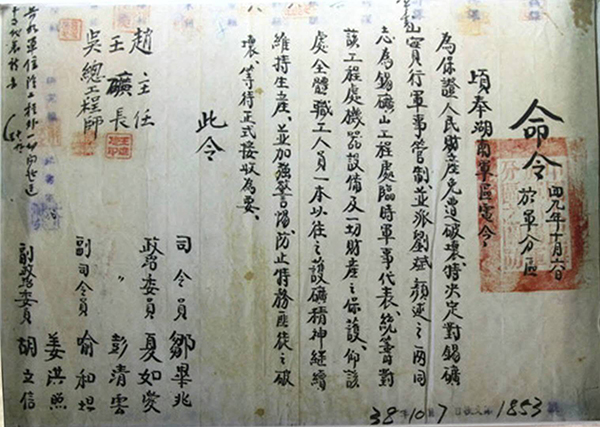 命令 四九年十月六日
於軍分區
頃奉湖南軍區電令
為保證人民財產免遭破壞，特決定對錫礦
山實行軍事管制，並派劉斌、顏連之兩同
志為錫礦山工程處臨時軍事代表，統籌對
該工程處機器設備及一切財產之保護，仰該
處全體職工人員一本以往之護礦精神繼續
維持生產，並加強警惕，防止特務匪徒之破
壞，等待正式接收為要。
此令
趙主任
王礦長
吳總工程師
司令員鄒畢兆
政治委員夏如愛
〃彭清雲
副司令員喻和坦
姜洪照
副政治委員胡立信
38年10月7日 1853